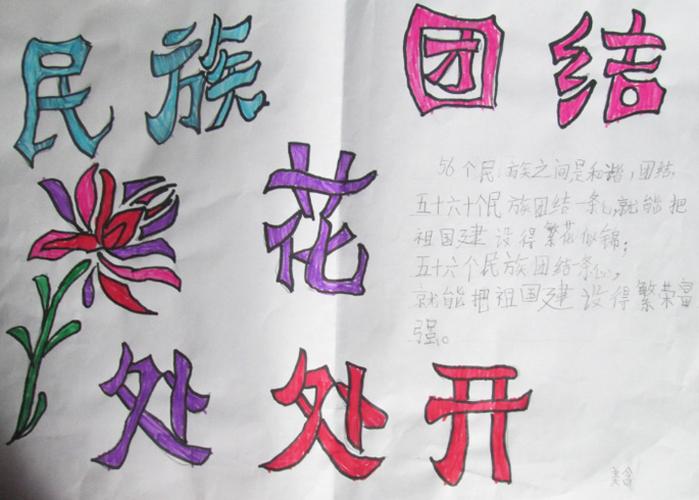 民族 团结
花
处处开
56个民族之间是和谐,团结,
五十六十个民族团结一条心,就能把
祖国建设得繁花似锦;
五十六个民族团结一条心,
就能把祖国建设得繁荣富
强。